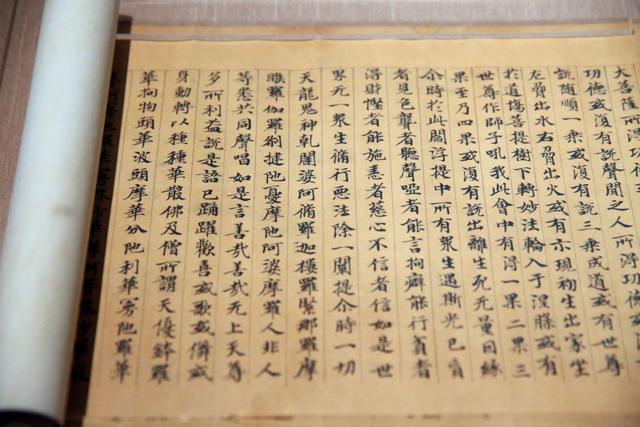 大菩薩所淂功德
功德或復有說聲聞之人所淂功德
說隨順一乘或復有說三乘成道或有世尊
左脅出水右脅出火或有示現初生出家坐
於道場菩提樹下轉妙法輪入于涅槃或有
世尊作師子吼我此會中有淂一果二果三
果至乃四果或復有說出離生死无量因緣
尒時於此閻浮提中所有眾生遇斯光已盲
者見色聾者聽聲啞者能言拘癖能行貧者
淂財慳者能施恚者慈心不信者信如是世
界无一眾生脩行惡法除一闡提尒時一切
天龍鬼神乹闥婆阿脩羅迦樓羅緊那羅摩
睺羅伽羅剎揵陁憂摩陁阿婆摩羅人非人
等悉共同聲唱如是言善哉善哉无上天尊
多所利益說是語已踊躍歡喜或歌或儛或
身動轉以種種華散佛及僧所謂天優鉢羅
華拘物頭華波頭摩華分陁利華曼陁羅華